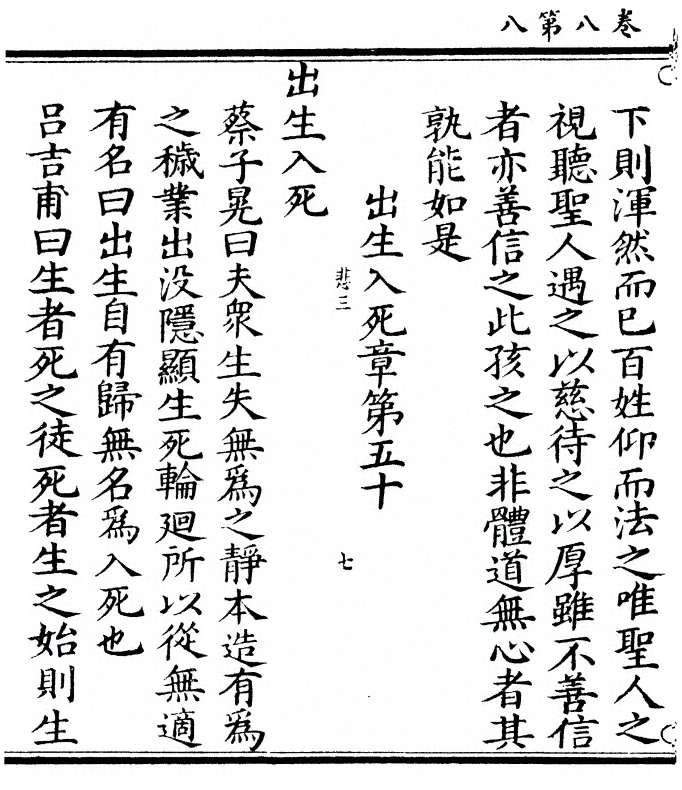 卷八第八
下則渾然而已百姓仰而法之唯聖人之
視聽聖人遇之以慈待之以厚雖不善信
者亦善信之此孩之也非體道無心者其
孰能如是
出生入死章第五十
悲三
七
出生入死
蔡子晃曰夫衆生失無爲之靜本造有爲
之穢業出没隱顯生死輪廻所以從無適
有名曰出生自有歸無名爲入死也
呂吉甫曰生者死之徒死者生之始則生